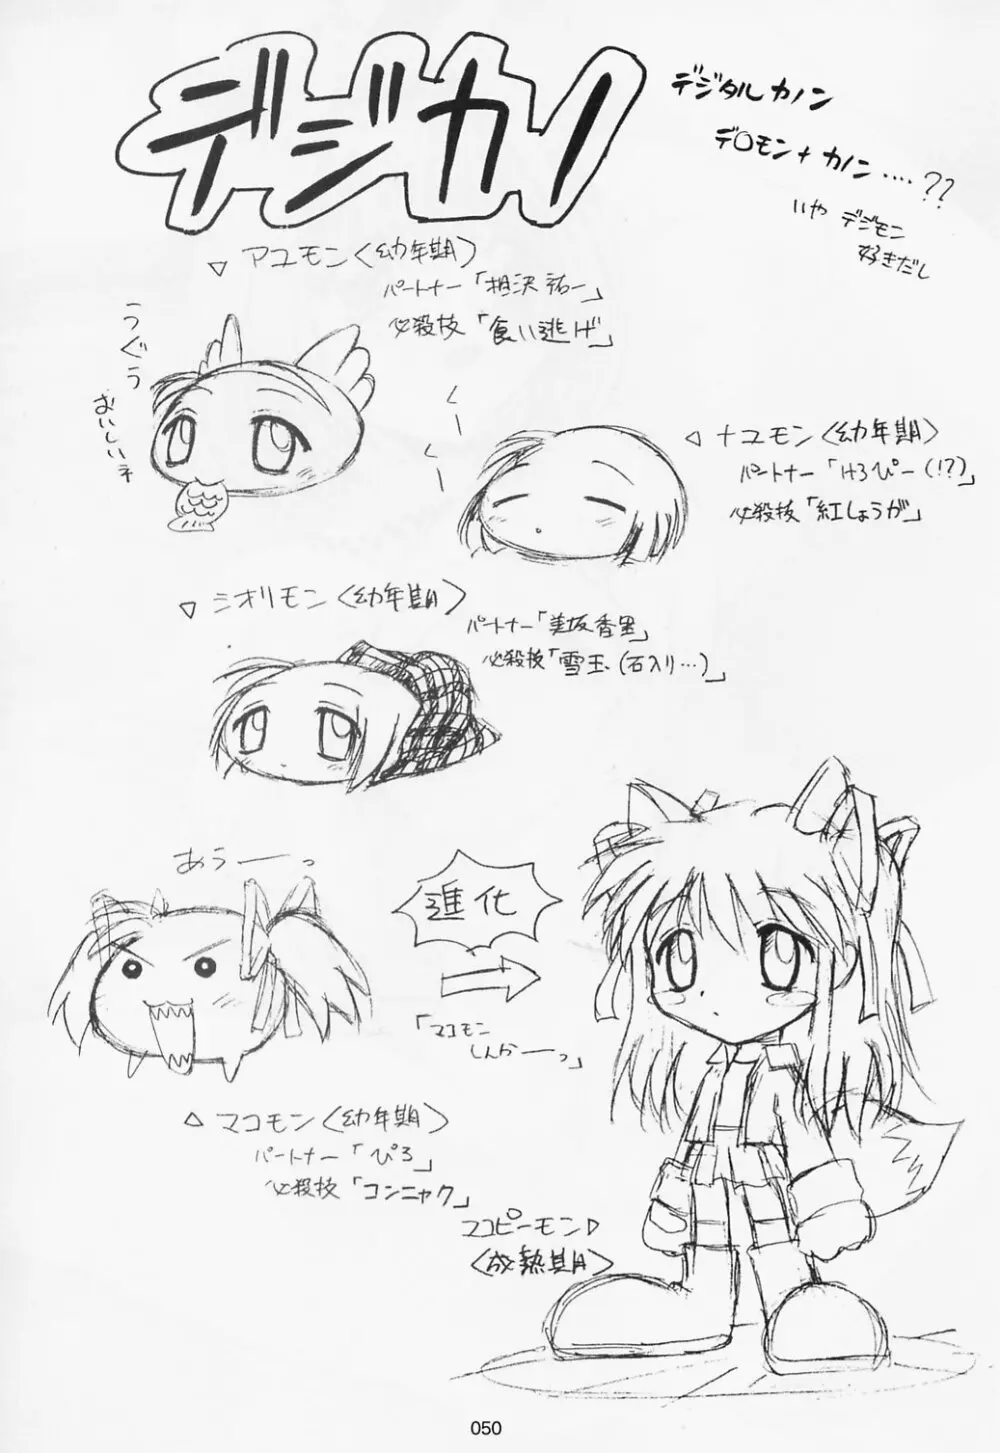 デジカノ
デジタルカノン
デ○モン+カノン‥‥??
いや デジモン
好きだし
▽ アユモン〈幼年期〉
パートナー「相沢祐一」
必殺技「食い逃げ」
うぐぅ
おいしい
くー
くー
◁ ナユモン〈幼年期〉
パートナー「けろぴー(!?)」
必殺技「紅しょうが」
▽ シオリモン〈幼年期〉
パートナー「美坂香里」
必殺技「雪玉(石入り…)」
あうーっ
進化
「マコモン
しんかーっ」
△ マコモン〈幼年期〉
パートナー「ぴろ」
必殺技「コンニャク」
マコピーモン▷
〈成熟期〉
050